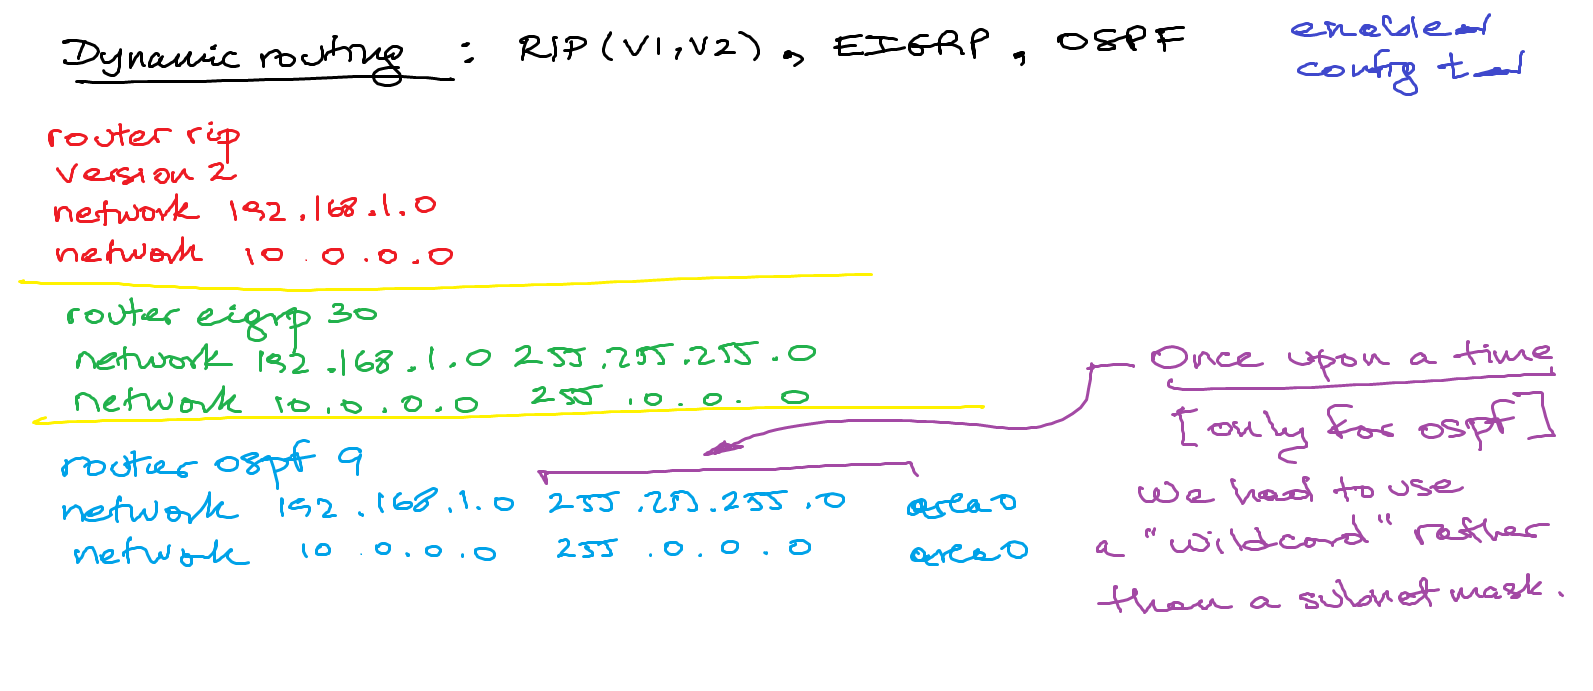 Dynamic routing : RIP (V1,V2), EIGRP, OSPF
enable
config t
router rip
version 2
network 192.168.1.0
network 10.0.0.0
router eigrp 30
network 192.168.1.0 255.255.255.0
network 10.0.0.0 255.0.0.0
router ospf 9
network 192.168.1.0 255.255.255.0 area 0
network 10.0.0.0 255.0.0.0 area 0
Once upon a time
[only for ospf]
We had to use
a "wildcard" rather
than a subnet mask.